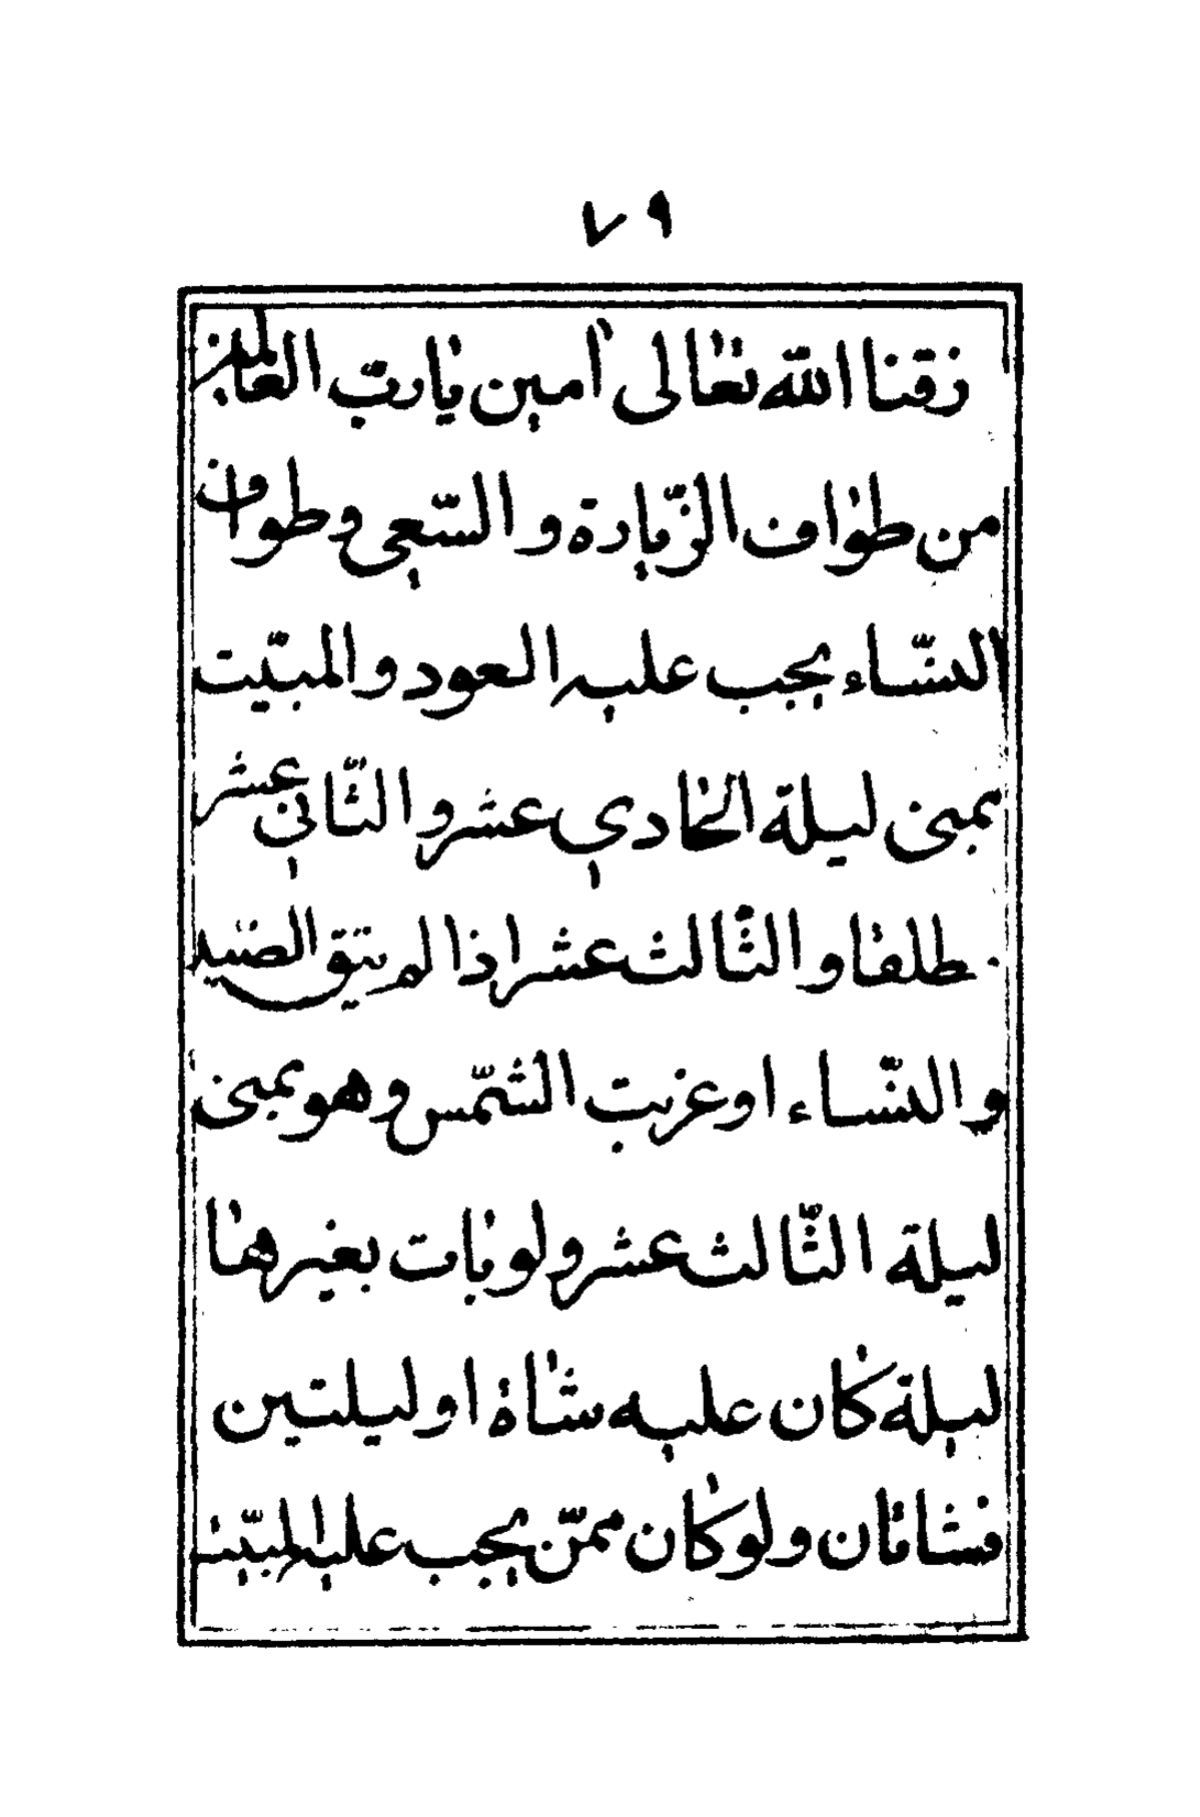 ٧٩
زقنا الله تعالى امين يا ربّ العالمين
من طواف الزّيارة والسّعي وطواف
النّساء يجب عليه العود والمبيت
بمنى ليلة الحادي عشر والثّاني عشر
طلقا والثّالث عشر اذا لم يتق الصّيد
والنّساء او غربت الشّمس وهو بمنى
ليلة الثّالث عشر ولو بات بغيرها
ليلة كان عليه شاة او ليلتين
فشاتان ولو كان ممّن يجب عليه المبيت